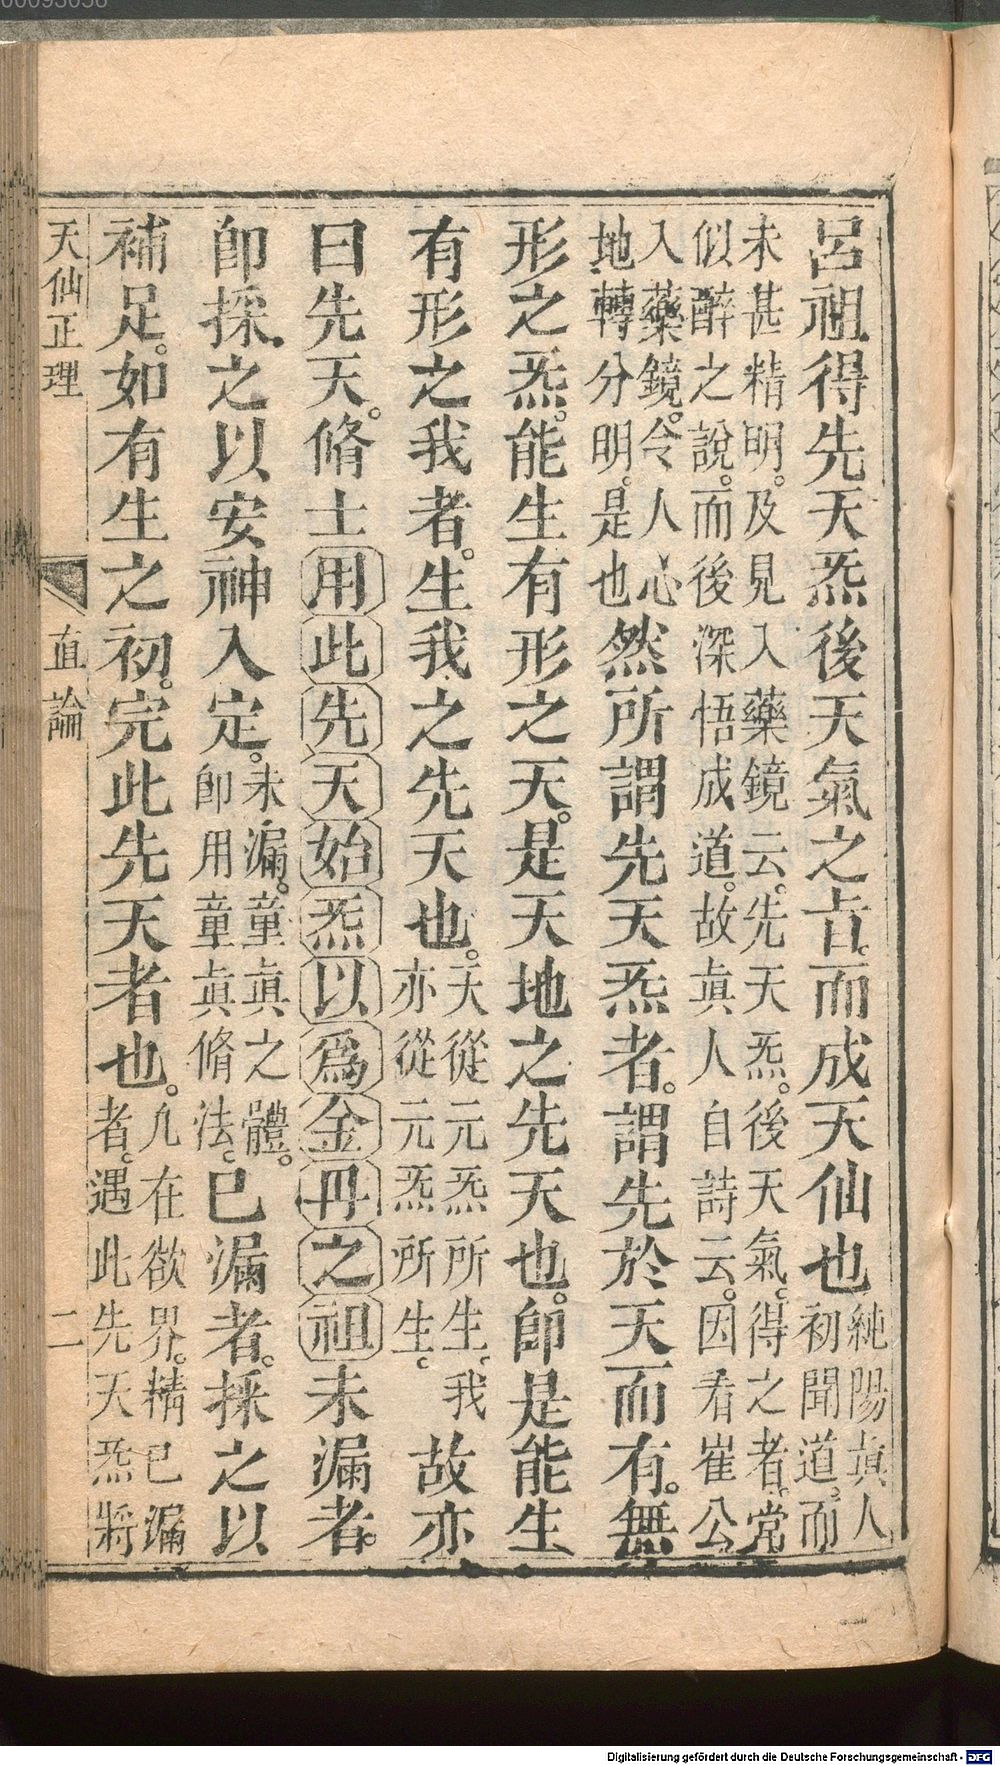 呂祖得先天炁後天氣之旨。而成天仙也純陽眞人
初聞道。而
未甚精明。及見入藥鏡云。先天炁。後天氣。得之者。常
似醉之說。而後深悟成道。故眞人自詩云。因看崔公
入藥鏡。令人心
地轉分明。是也然所謂先天炁者。謂先於天而有。無
形之炁。能生有形之天。是天地之先天也。卽是能生
有形之我者。生我之先天也。天從元炁所生。我
亦從元炁所生。故亦
曰先天。脩士用此先天始炁以爲金丹之祖未漏者。
卽採之以安神入定。未漏。童眞之體。
卽用童眞脩法。已漏者。採之以
補足。如有生之初。完此先天者也。凡在欲界。精已漏
者。遇此先天炁將
天仙正理 直論 二
Digitalisierung gefördert durch die Deutsche Forschungsgemeinschaft - DFG